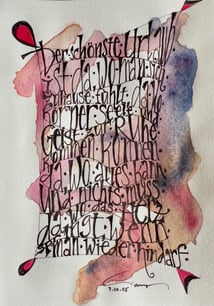 Der schönste Urlaub
ist da, wo man sich
zuhause fühlt,
Körper, Seele und
Geist zur Ruhe
kommen können.
Da, wo alles kann
und nichts muss
das Herz
da ist, wenn
man wieder hin darf.